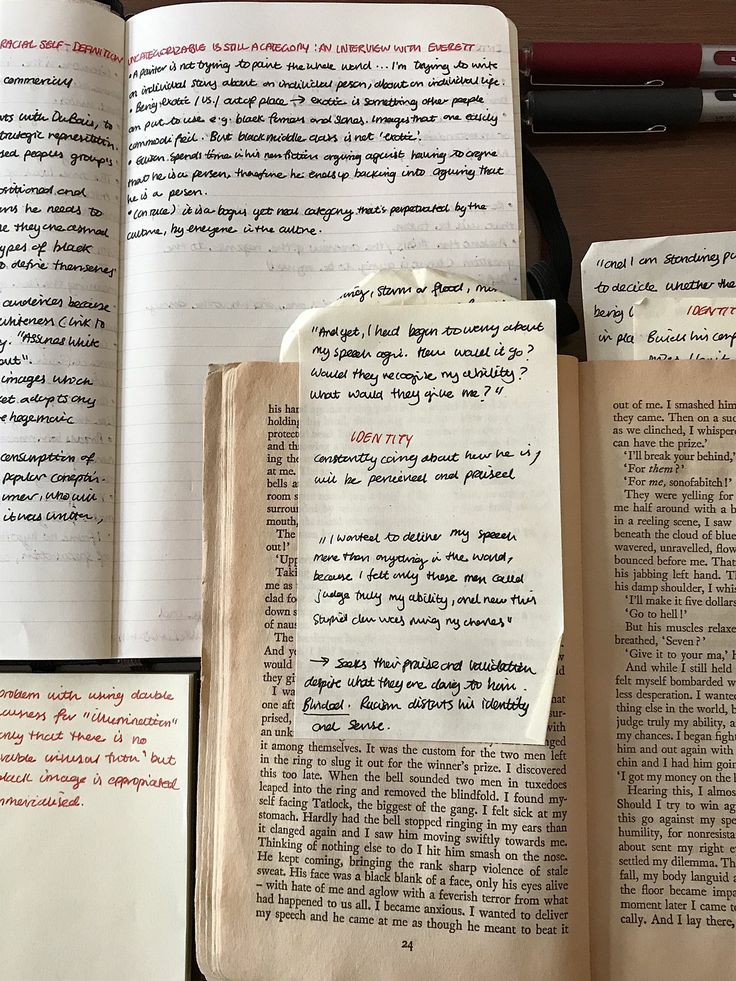 RACIAL SELF-DEFINITION
commercially
with DuBois, to
strategic representation.
peoples group's
positioned and
he needs to
they are asmod
types of black
to define themselves
audiences because
whiteness (link to
"Assumes white
out".
images which
adapts any
hegemonic
consumption of
popular
who will
it was written,
UNCATEGORIZABLE IS STILL A CATEGORY: AN INTERVIEW WITH EVERETT
• A painter is not trying to paint the whole world ... I'm trying to write
an individual story about an individual person, about an individual life.
• Being exotic /vs./ out of place → exotic is something other people
can put to use e.g. black farmers and Images that are easily
commodified. But black middle class is not 'exotic'.
• Ellison. Spends time in his non fiction arguing against having to argue
that he is a person, therefore he ends up backing into arguing that
he is a person.
• (on race) it is a bogus yet real category that's perpetuated by the
culture, by everyone in the culture.
storm or flood,
"And yet, I had begun to worry about
my speech again. How would it go?
Would they recognise my ability?
What would they give me?"
IDENTITY
constantly caring about how he is/
will be perceived and praised
"I wanted to deliver my speech
more than anything in the world,
because I felt only these men could
judge truly my ability, and now this
stupid clown was ruining my chances"
→ Seeks their praise and validation
despite what they are doing to him.
Blinded. Racism distorts his identity
and sense.
"and I am standing
to decide whether the
being
in
IDENTITY
problem with using double
for "illumination"
only that there is no
but
black image is appropriated
commercialised.
his
holding
protect
and th
ing the
at me.
bells a
room s
surrou
mouth,
The
out!'
'Upp
Taki
me as
clad foo
down s
of naus
The
And ye
would
they gi
I wa
one aft
prised,
an unk
it among themselves. It was the custom for the two men left
in the ring to slug it out for the winner's prize. I discovered
this too late. When the bell sounded two men in tuxedoes
leaped into the ring and removed the blindfold. I found my-
self facing Tatlock, the biggest of the gang. I felt sick at my
stomach. Hardly had the bell stopped ringing in my ears than
it clanged again and I saw him moving swiftly towards me.
Thinking of nothing else to do I hit him smash on the nose.
He kept coming, bringing the rank sharp violence of stale
sweat. His face was a black blank of a face, only his eyes alive
– with hate of me and aglow with a feverish terror from what
had happened to us all. I became anxious. I wanted to deliver
my speech and he came at me as though he meant to beat it
24
out of me. I smashed him
they came. Then on a su
as we clinched, I whispere
can have the prize.'
'I'll break your behind,'
'For them?'
'For me, sonofabitch!'
They were yelling for
me half around with a b
in a reeling scene, I saw
beneath the cloud of blue
wavered, unravelled, flow
bounced before me. That
his jabbing left hand. Th
his damp shoulder, I whis
'I'll make it five dollars
'Go to hell!'
But his muscles relaxe
breathed, 'Seven?'
'Give it to your ma,' h
And while I still held
felt myself bombarded w
less desperation. I wanted
thing else in the world, b
judge truly my ability, a
my chances. I began fight
him and out again with
chin and I had him going
'I got my money on the b
Hearing this, I almos
Should I try to win ag
this go against my spe
humility, for nonresista
about sent my right e
settled my dilemma. Th
fall, my body languid a
the floor became impa
moment later I came to
cally. And I lay there,